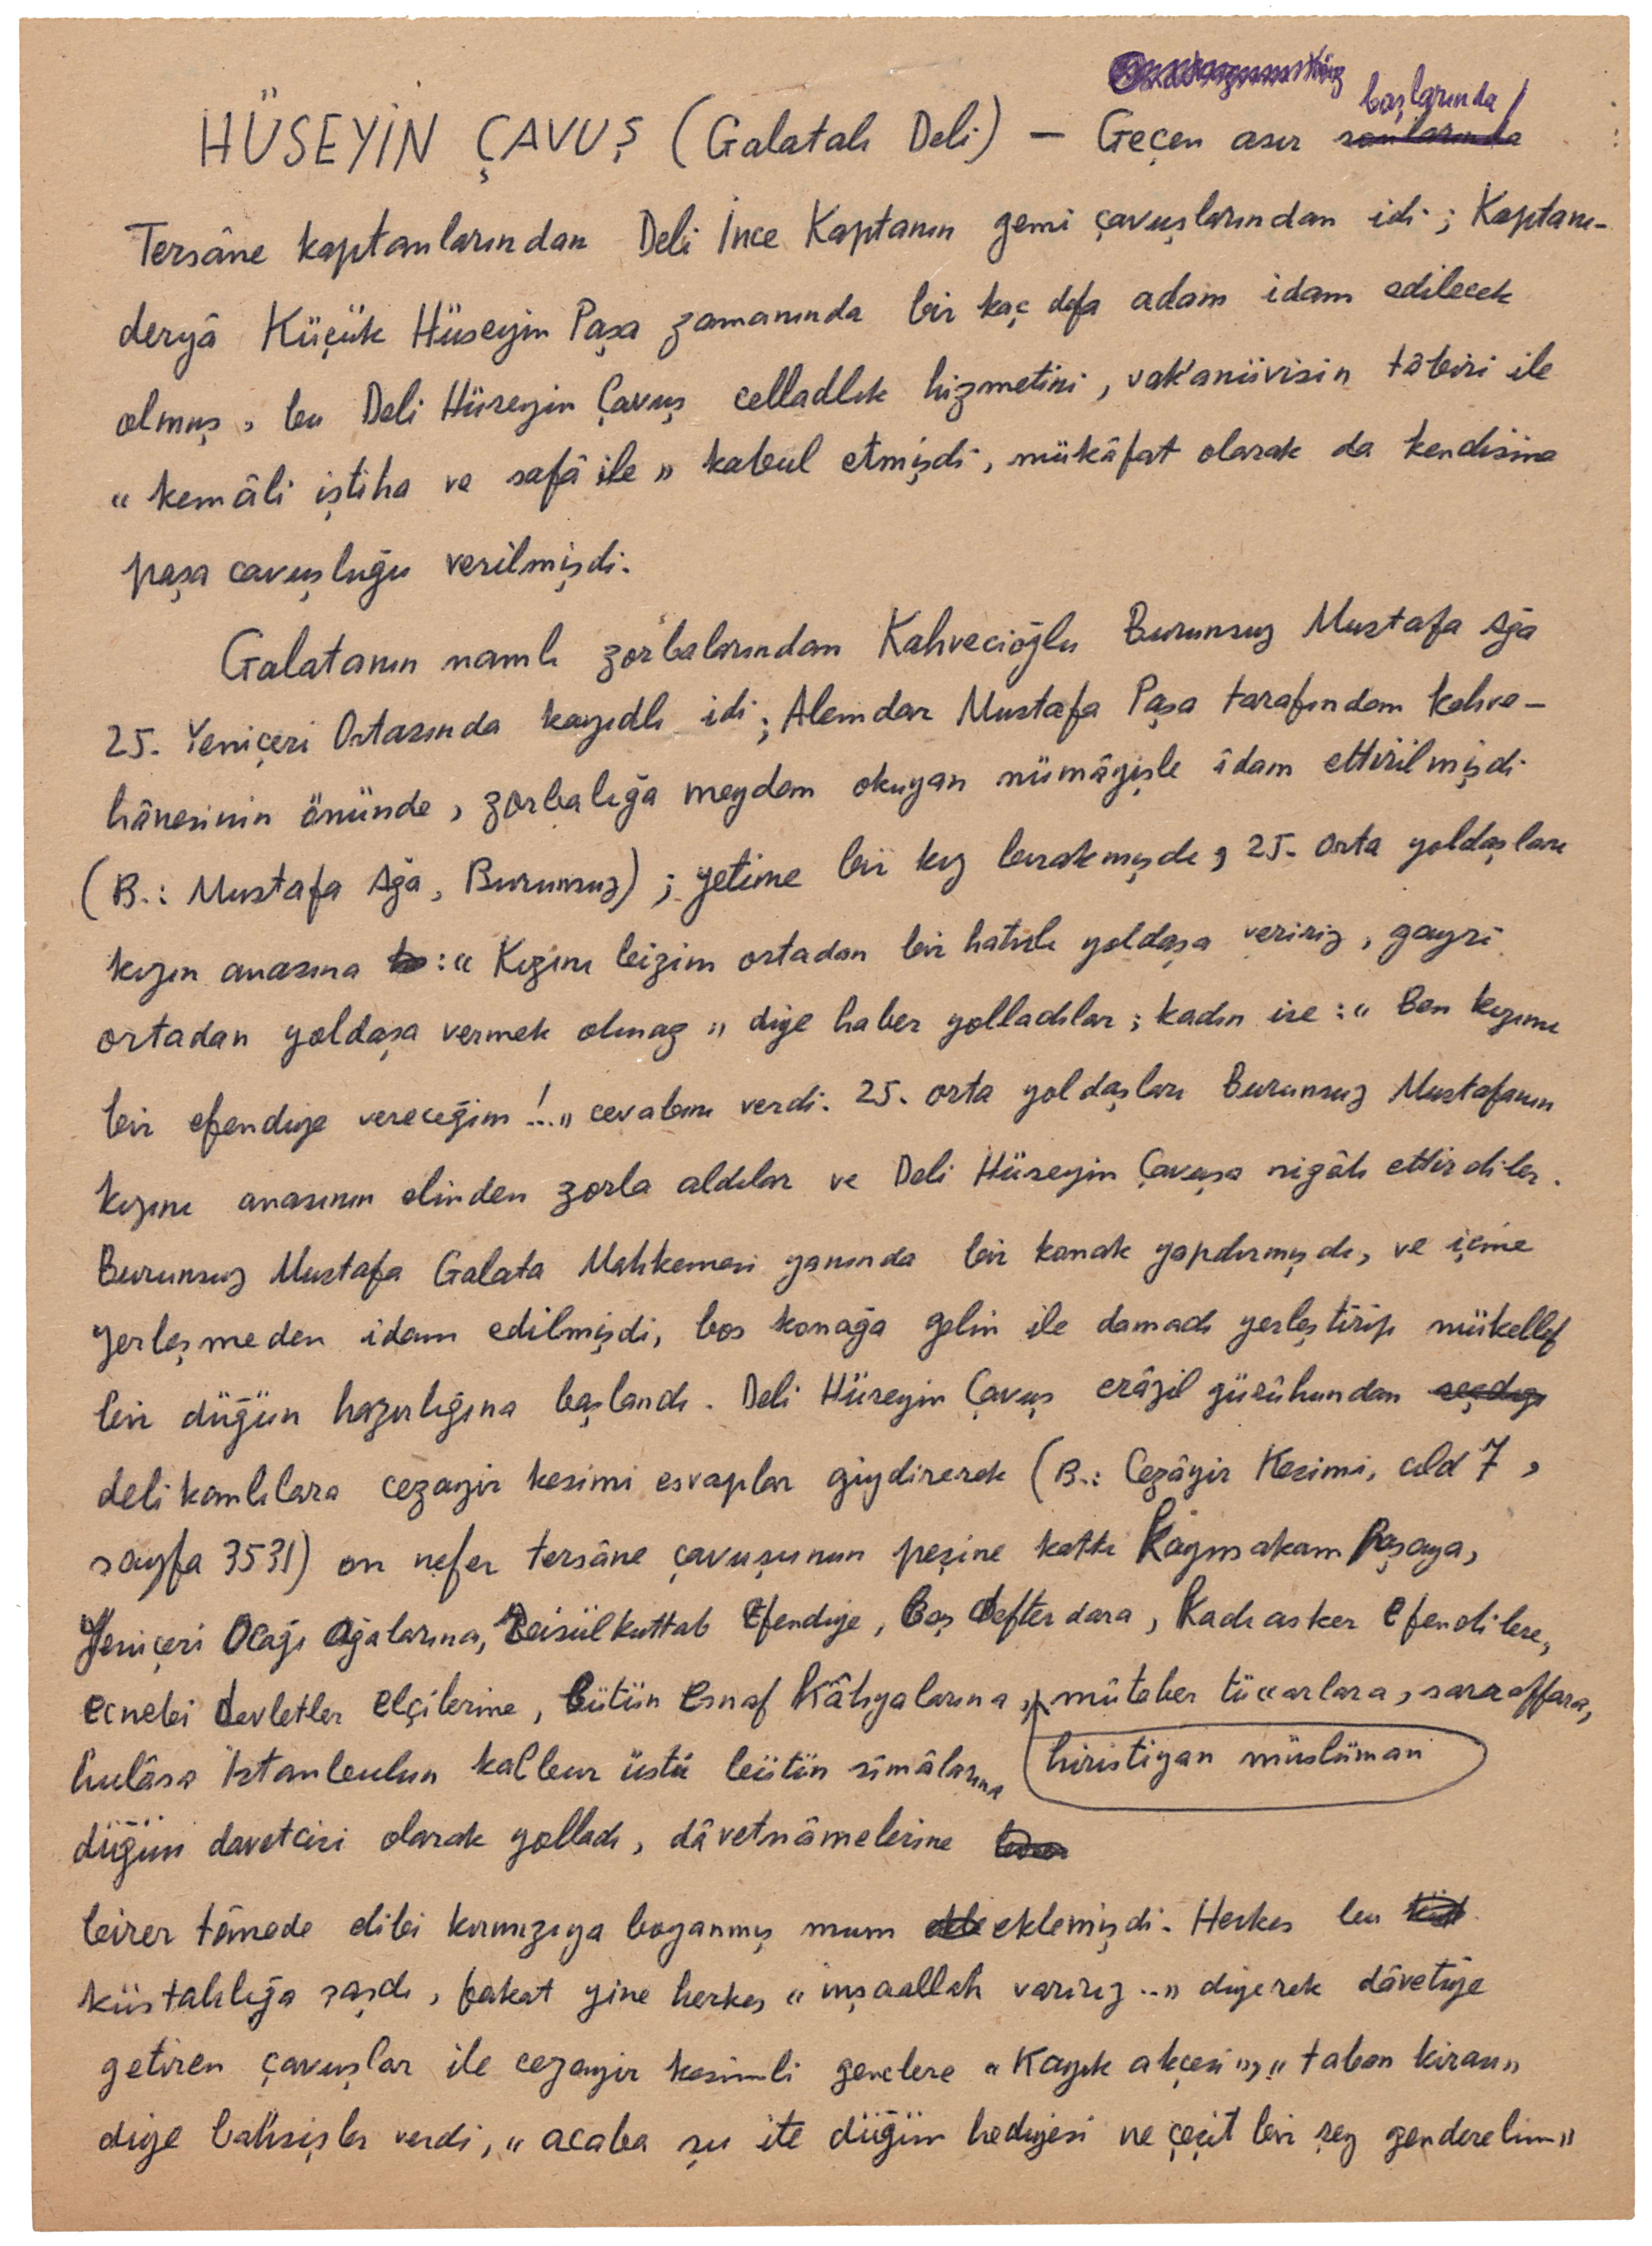 HÜSEYİN ÇAVUŞ (Galatalı Deli) — Geçen asır başlarında
Tersâne kaptanlarından Deli İnce Kaptanın gemi çavuşlarından idi; Kaptanı-
deryâ Küçük Hüseyin Paşa zamanında bir kaç defa adam idam edilecek
olmuş, bu Deli Hüseyin Çavuş celladlık hizmetini, vak'anüvisin tâbiri ile
"kemâli iştiha ve safâ ile" kabul etmişdi, mükâfat olarak da kendisine
paşa çavuşluğu verilmişdi.
Galatanın namlı zorbalarından Kahvecioğlu Burunsuz Mustafa Ağa
25. Yeniçeri Ortasında kayıdlı idi; Alemdar Mustafa Paşa tarafından kahve-
hânesinin önünde, zorbalığa meydan okuyan nümâyişle îdam ettirilmişdi
(B.: Mustafa Ağa, Burunsuz); yetime bir kız bırakmışdı, 25. Orta yoldaşları
kızın anasına : "Kızını bizim ortadan bir hatırlı yoldaşa veririz, gayri
ortadan yoldaşa vermek olmaz" diye haber yolladılar; kadın ise : "Ben kızımı
bir efendiye vereceğim!.." cevabını verdi. 25. orta yoldaşları Burunsuz Mustafanın
kızını anasının elinden zorla aldılar ve Deli Hüseyin Çavuşa nigâh ettirdiler.
Burunsuz Mustafa Galata Mahkemesi yanında bir konak yapdırmışdı, ve içine
yerleşmeden idam edilmişdi, boş konağa gelin ile damadı yerleştirip mükellef
bir düğün hazırlığına başlandı. Deli Hüseyin Çavuş erâzil gürûhundan seçdiği
delikanlılara cezayir kesimi esvaplar giydirerek (B.: Cezâyir Kesimi, cild 7,
sayfa 3531) on nefer tersâne çavuşunun peşine kattı Kaymakam Paşaya,
Yeniçeri Ocağı Ağalarına, Reisülküttab Efendiye, Baş Defterdara, Kadıasker Efendilere,
ecnebi devletler elçilerine, bütün esnaf Kâhyalarına, mûteber tüccarlara, sarraflara,
hulâsa İstanbulun kalbur üstü bütün sîmâlarına hiristiyan müslüman
düğün davetcisi olarak yolladı, dâvetnâmelerine
birer tânede dibi kırmızıya boyanmış mum eklemişdi. Herkes bu
küstahlığa şaşdı, fakat yine herkes "inşaallah varırız.." diyerek dâvetiye
getiren çavuşlar ile cezayir kesimli genclere "Kayık akçesi", "taban kirası"
diye bahşişler verdi, "acaba şu ite düğün hediyesi ne çeşit bir şey gönderelim"